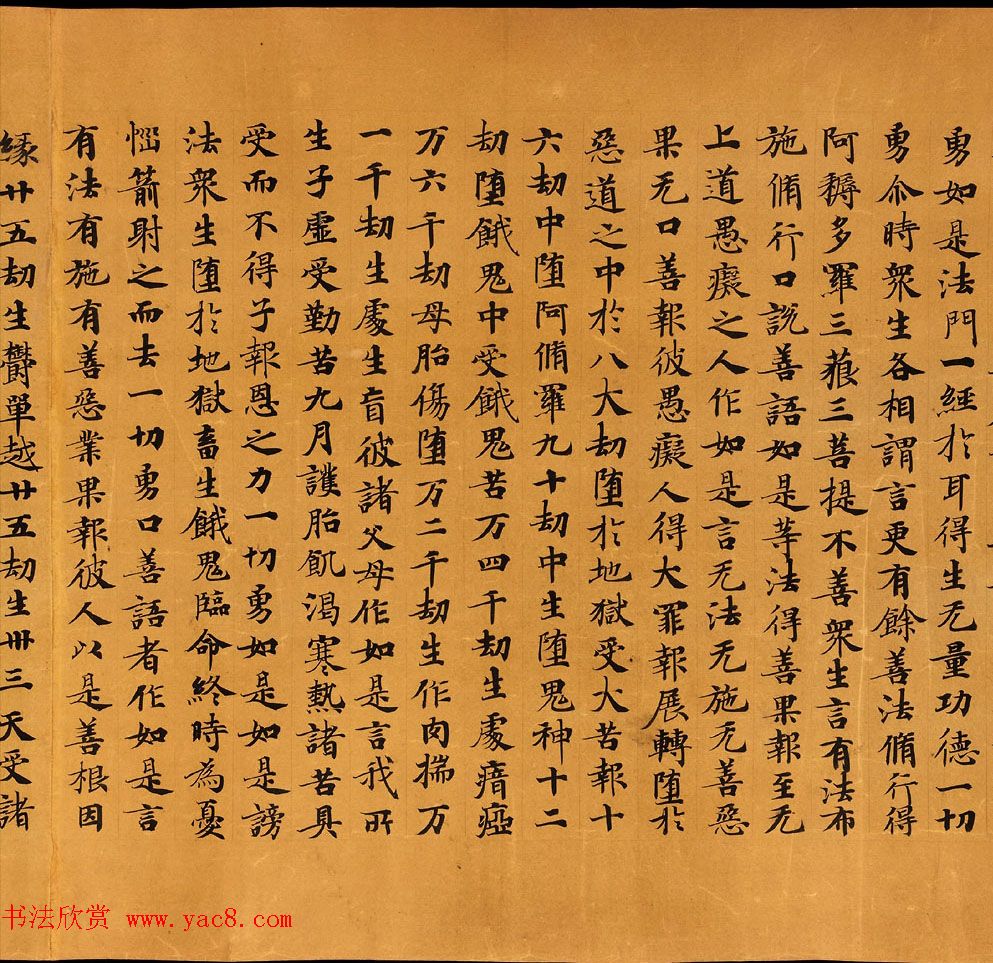 勇如是法門一經於耳得生无量功德一切
勇尒時衆生各相謂言更有餘善法脩行得
阿耨多羅三藐三菩提不善衆生言有法布
施脩行口說善語如是等法得善果報至无
上道愚癡之人作如是言无法无施无善惡
果无口善報彼愚癡人得大罪報展轉墮於
惡道之中於八大劫墮於地獄受大苦報十
六劫中墮阿脩羅九十劫中生墮鬼神十二
劫墮餓鬼中受餓鬼苦万四千劫生處瘖瘂
万六千劫母胎傷墮万二千劫生作肉揣万
一千劫生處生盲彼諸父母作如是言我所
生子虛受勤苦九月護胎飢渴寒熱諸苦具
受而不得子報恩之力一切勇如是如是謗
法衆生墮於地獄畜生餓鬼臨命終時為憂
惱箭射之而去一切勇口善語者作如是言
有法有施有善惡業果報彼人以是善根因
緣廿五劫生欝單越廿五劫生卅三天受諸
书法欣赏 www.yac8.com